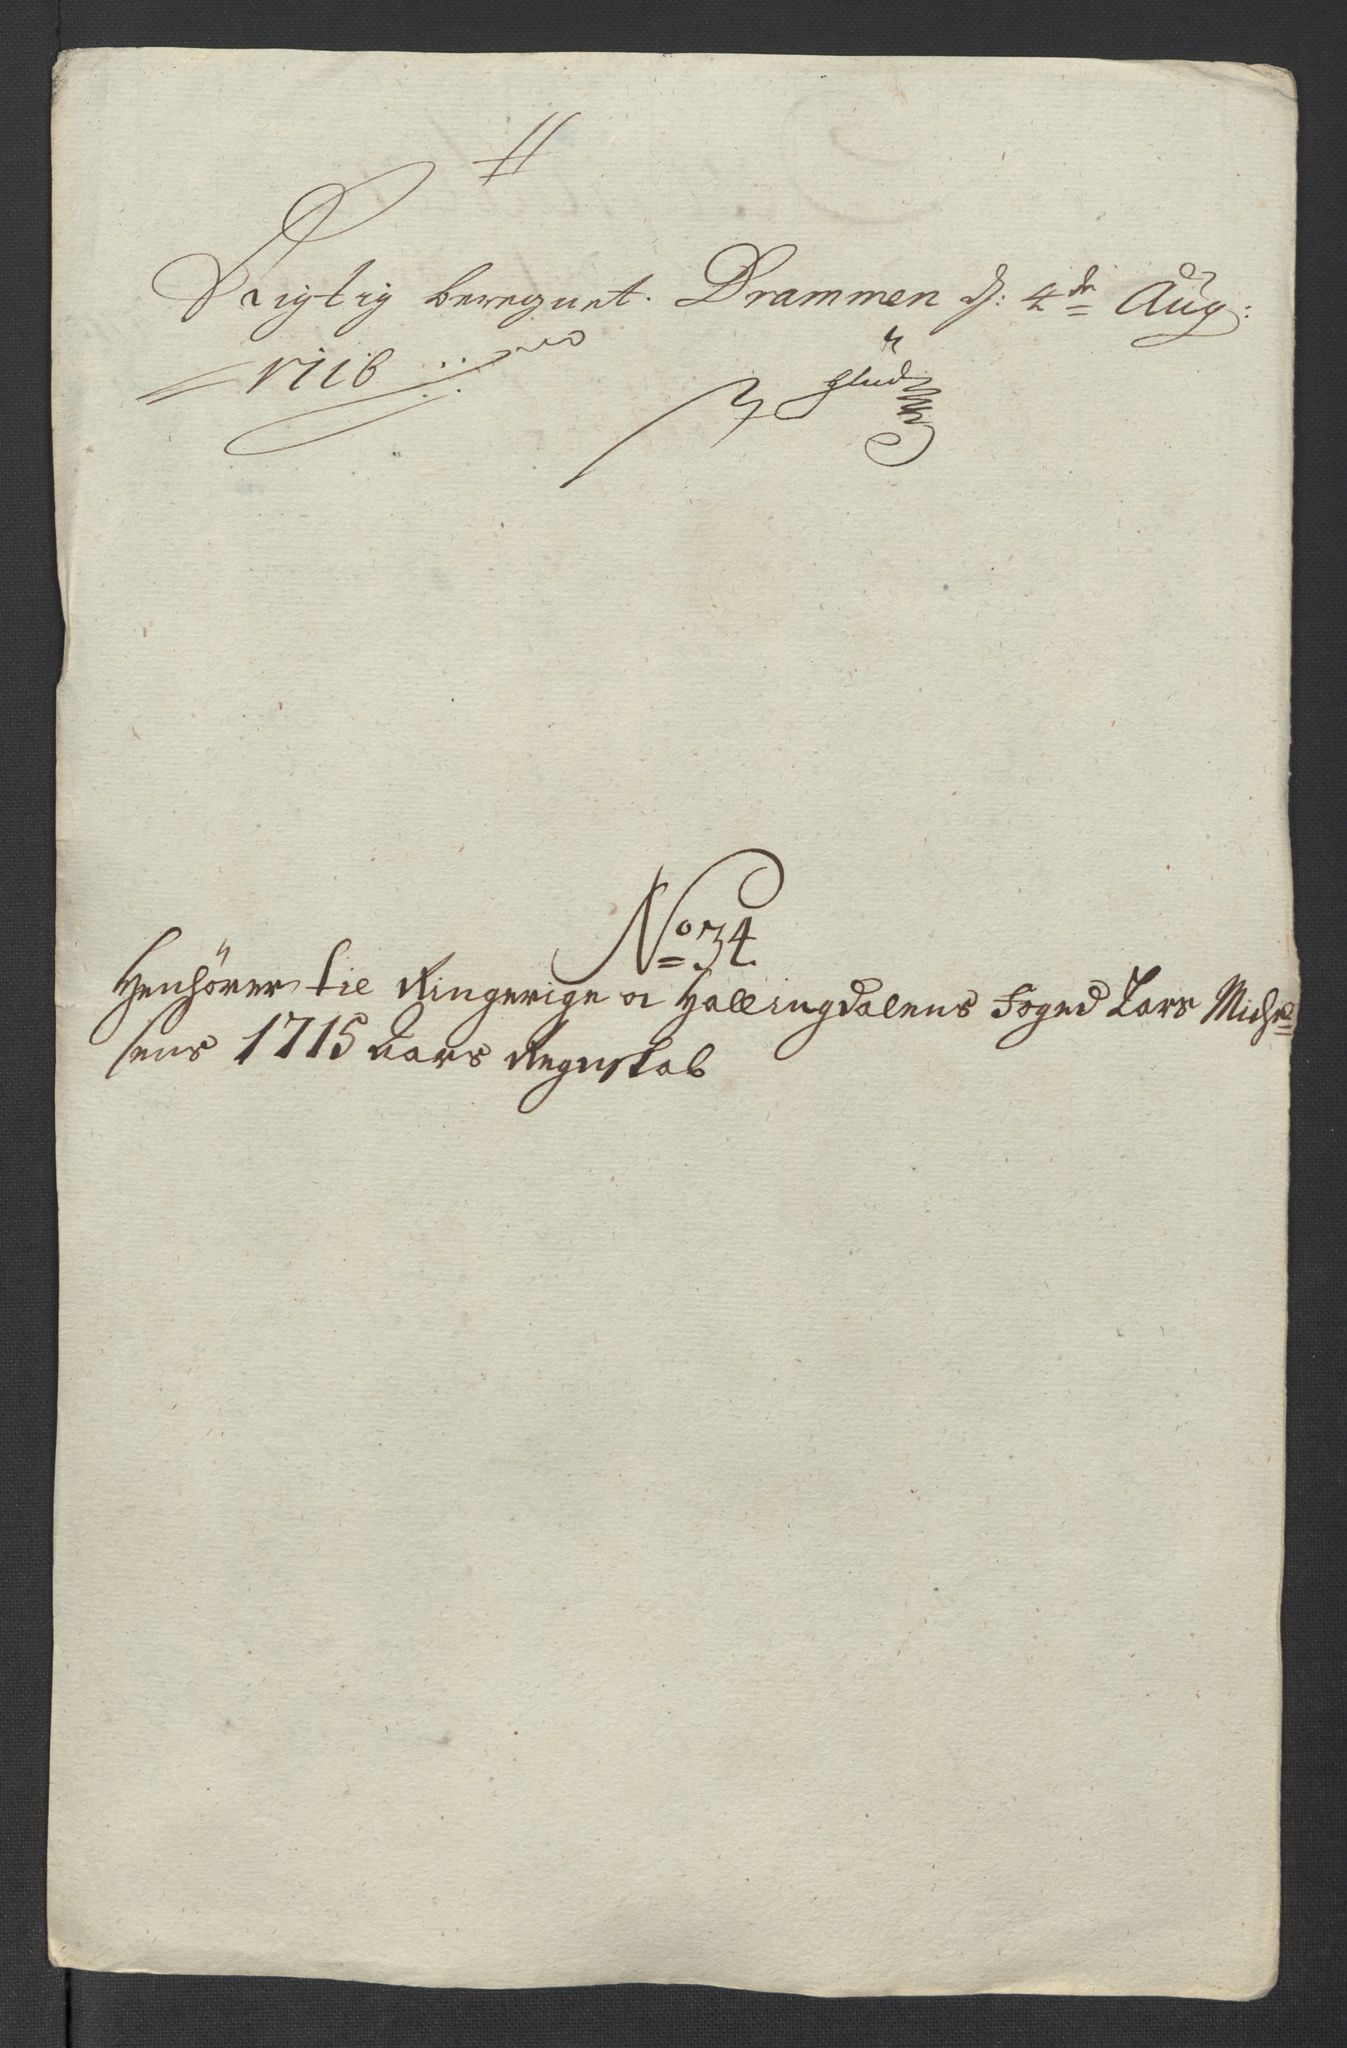 Rigtig beregnet. Drammen d: 4de Aug:
1716
Glud
No 34.
Henhörer til Ringerige oc Hallingdalens Foged Lars Michel=
sens 1715 Aars Regnskab